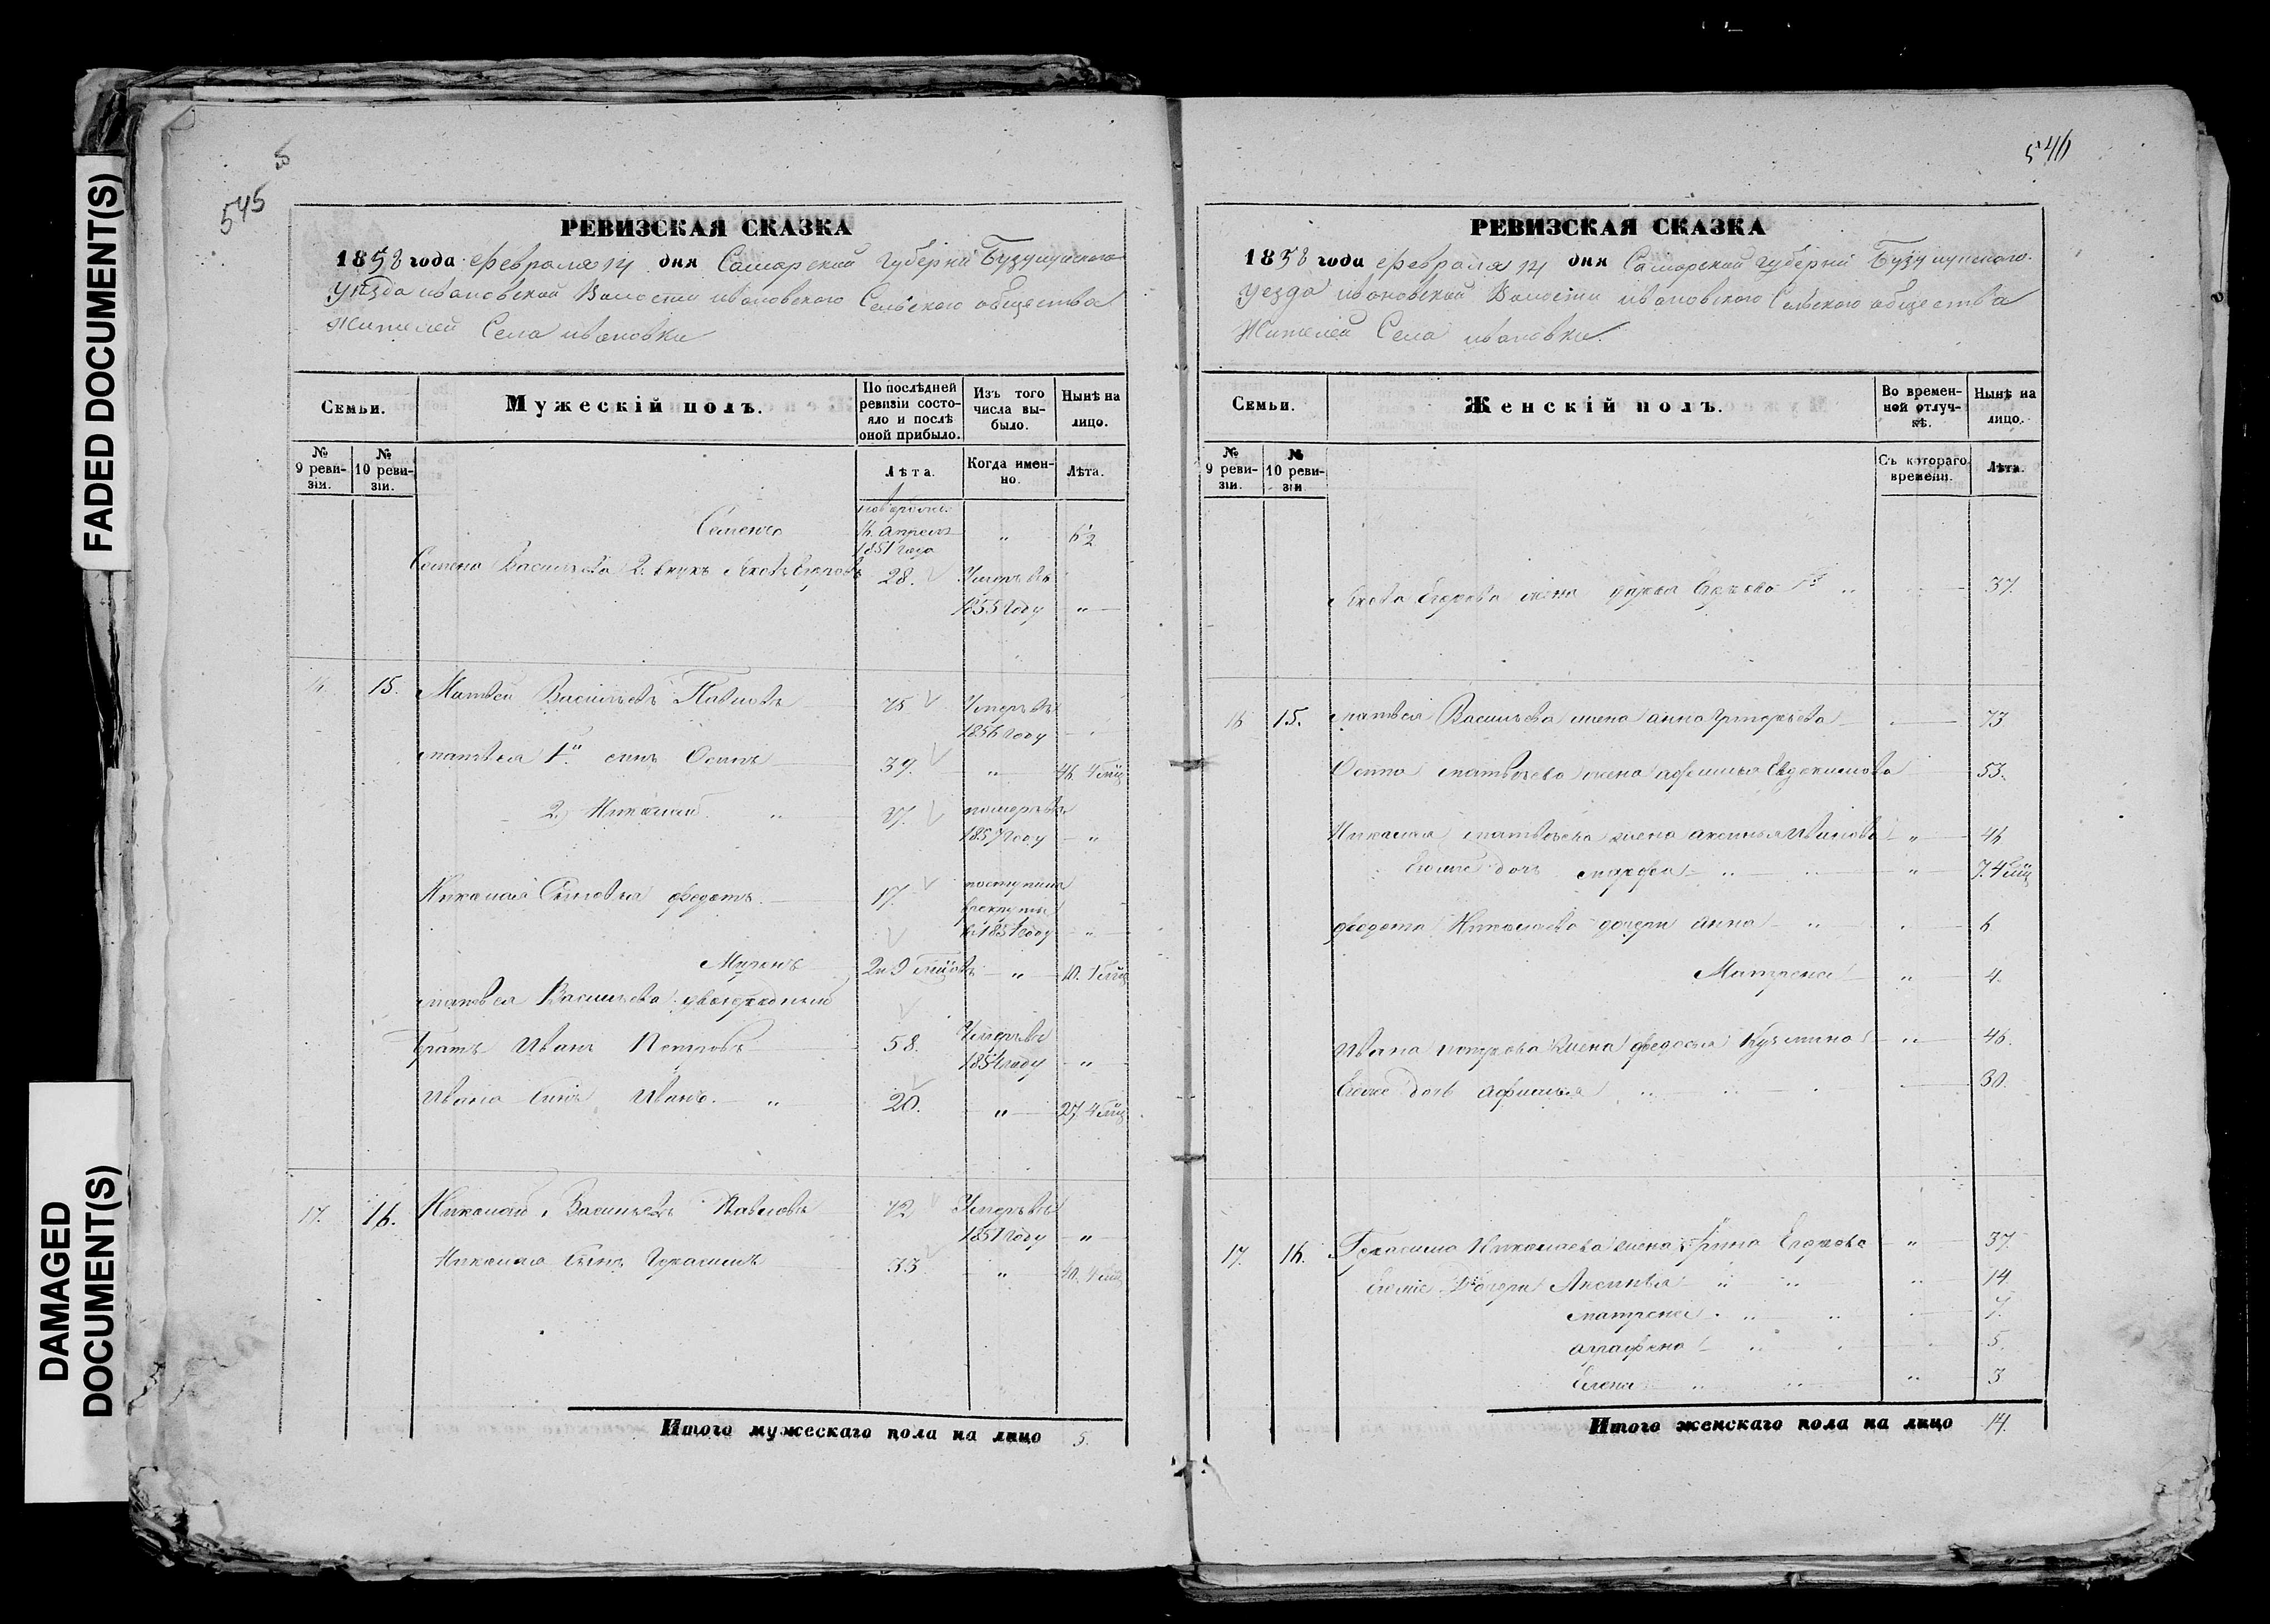 FADED DOCUMENT(S)
DAMAGED
DOCUMENT(S)
545
РЕВИЗСКАЯ СКАЗКА
1858 года февраля 14 дня Самарской Губернии Бузулуцкого
Уезда ивановской Волости ивановского Сельского общества
Жителей Села ивановки
Семьи.
Мужескій полъ.
По послѣдней ревизіи состояло и послѣ оной прибыло.
Изъ того числа выбыло.
Нынѣ на лицо.
№ 9 ревизіи.
№ 10 ревизіи.
Лѣта.
Когда именно.
Лѣта.
Семенъ
апреля
1851 года
" 6 1/2
Семена Васильева 2. внукъ Яковъ Егоровъ 28. Умеръ въ
1855 году "
16. 15. Матвей Васильевъ Павловъ 75 Умеръ въ
1856 году
матвея 1й сынъ Осипъ 39. " 46. 4 мца
2. Николай " 37. померъ въ
1857 году "
Николая Сыновья федотъ 17. поступилъ
врекруты
в 1851 году "
Миронъ 2 и 9 мцовъ " 10. 1 мца
матвея Васильева двоюродный
братъ Иванъ Петровъ 58. Умеръ въ
1851 году "
Ивана Сынъ Иванъ. " 20. " 27 4 мца
17. 16. Николай Васильевъ Павловъ 72 Умеръ въ
1851 году "
Николая Сынъ Герасимъ 33. " 40. 4 мца
Итого мужескаго пола на лицо 5.
546
РЕВИЗСКАЯ СКАЗКА
1858 года февраля 14 дня Самарской Губернии Бузулуцкого
Уезда ивановской Волости ивановского Сельского общества
Жителей Села ивановки.
Семьи.
Женскій полъ.
Во временной отлучкѣ.
Нынѣ на лицо.
№ 9 ревизіи.
№ 10 ревизіи
Съ котораго времени.
Лѣта.
Якова Егорова жена дарья Егорова " 37.
16 15. матвея Васильева жена анна григорьева 73
Осипа матвеева жена афимья Евдокимова 53.
Николая матвеева жена аксинья Иванова " 46
Егоже дочь марфа " " 7. 4 мца
федота Николаева дочери анна " 6
Матрена " 4.
Ивана петрова жена федосья Кузьмина " 46.
Егоже дочь афимья " 30.
17. 16. Герасима Николаева жена Ирина Егорова " 37.
Егоже Дочери Аксинья " " 14
матрена " " 7.
аграфена " 5.
Елена " " 3
Итого женскаго пола на лицо 14.